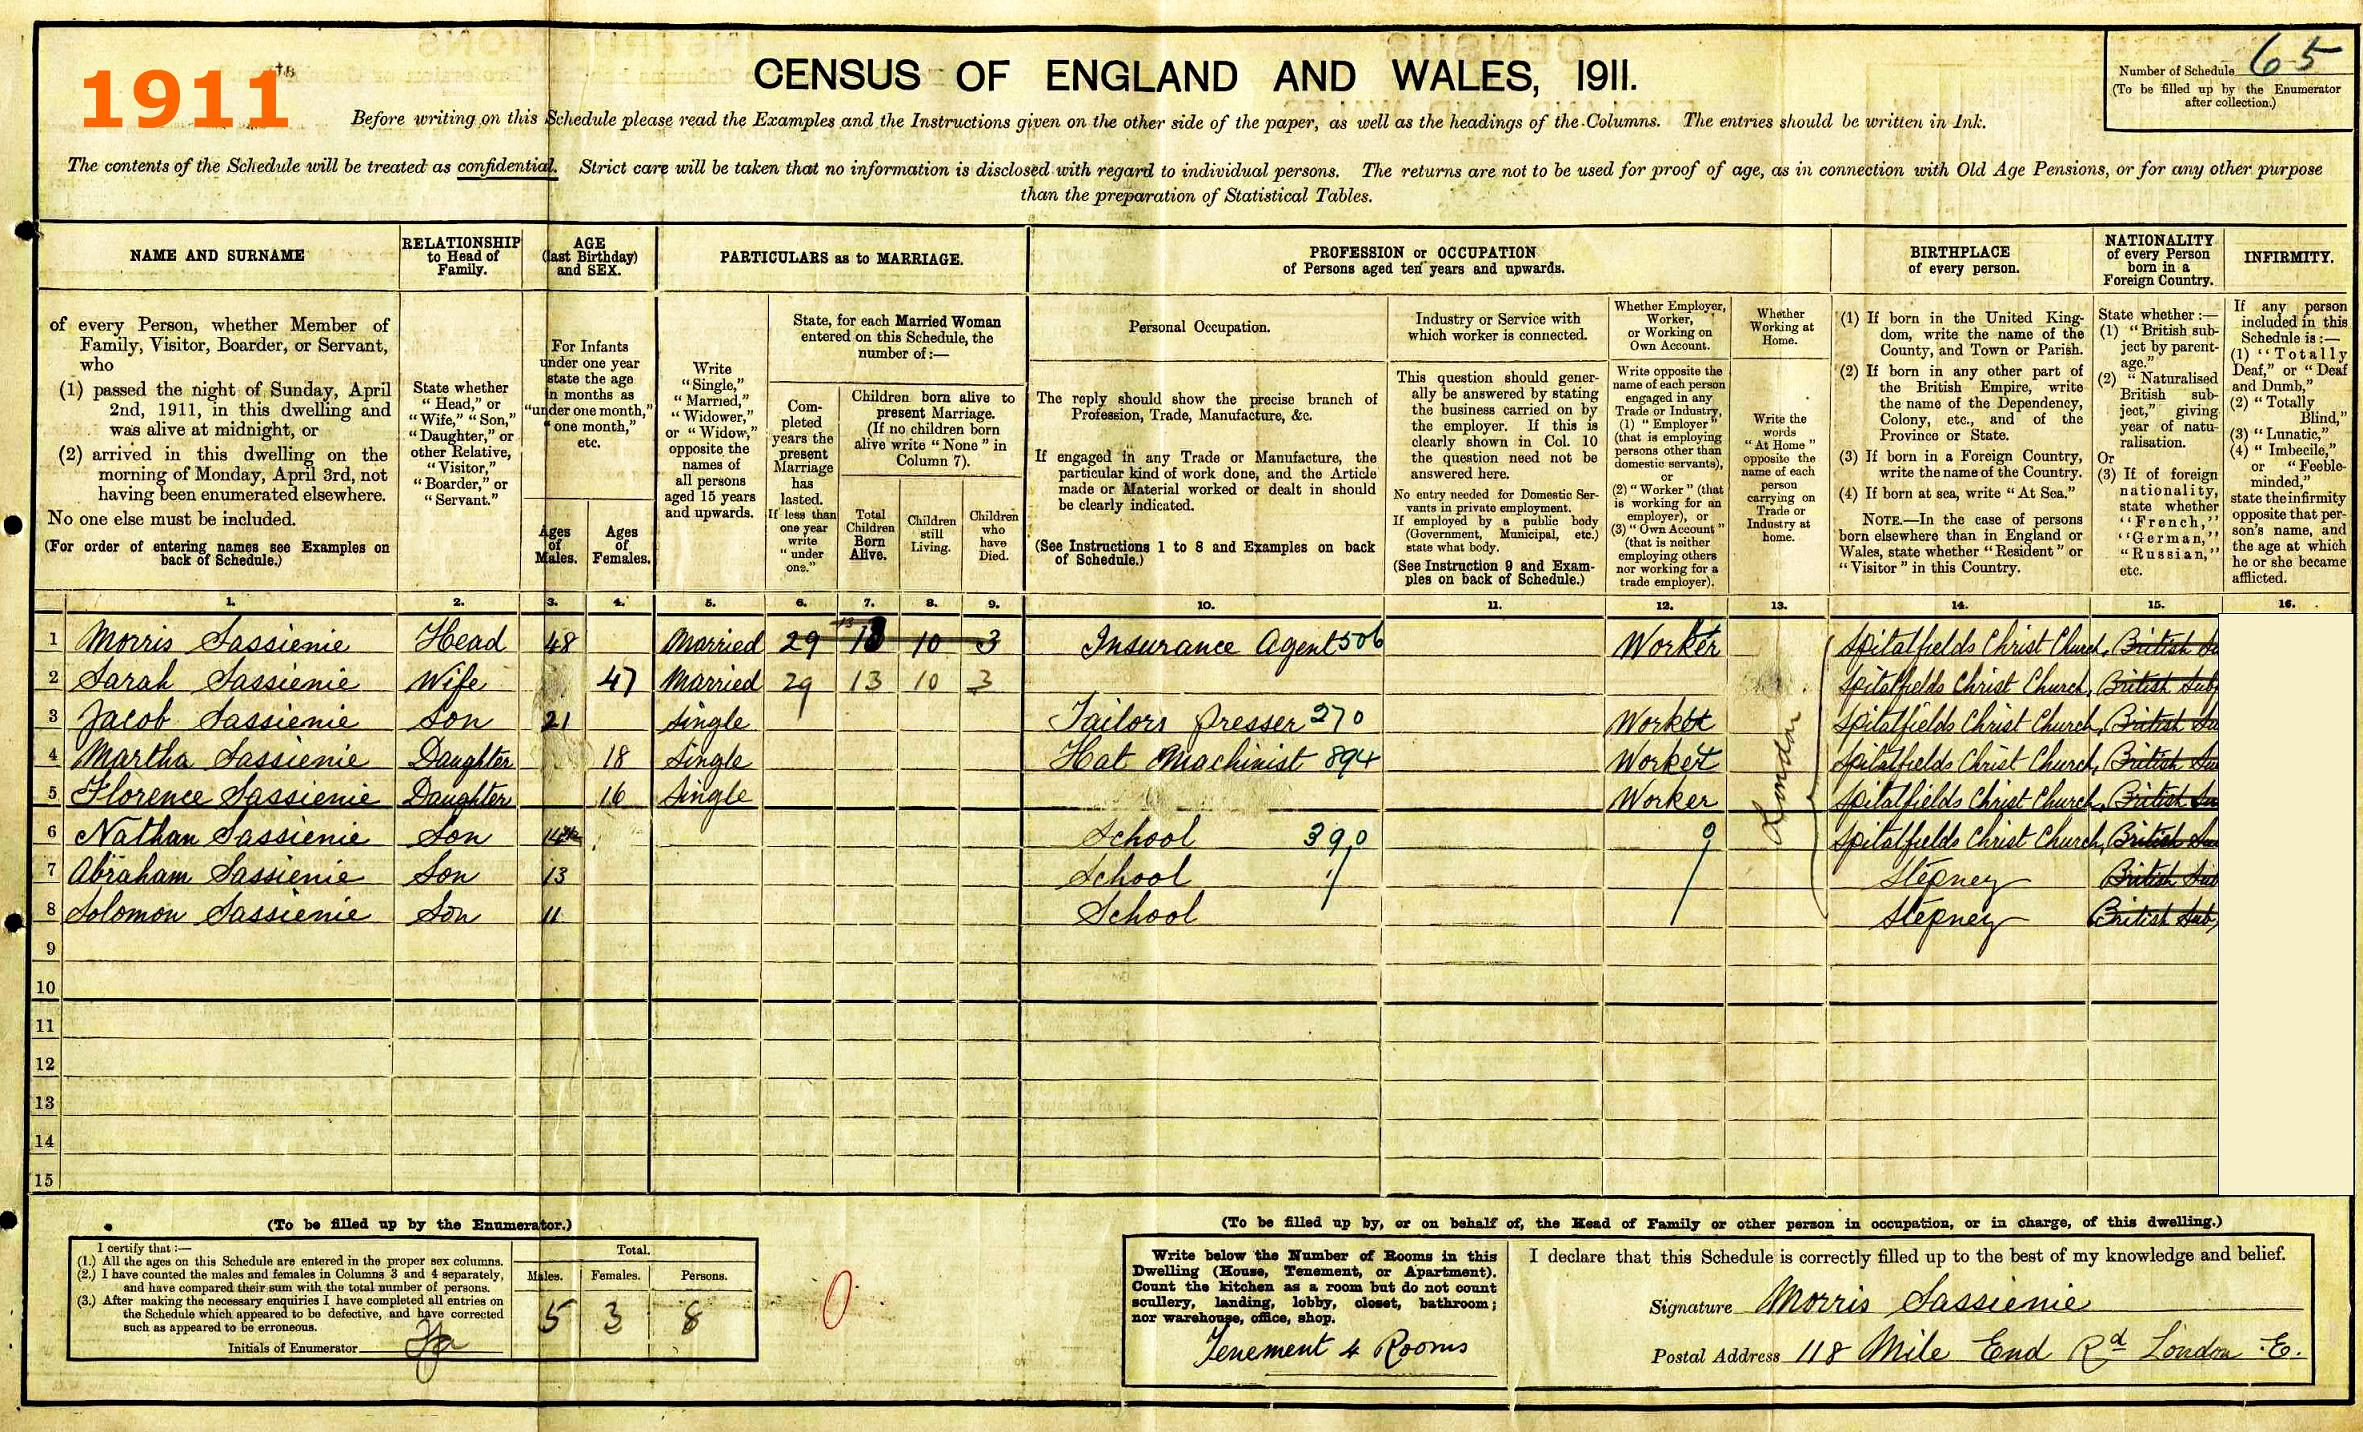 1911
CENSUS OF ENGLAND AND WALES, 1911.
Number of Schedule 65
(To be filled up by the Enumerator
after collection.)
Before writing on this Schedule please read the Examples and the Instructions given on the other side of the paper, as well as the headings of the Columns. The entries should be written in Ink.
The contents of the Schedule will be treated as confidential. Strict care will be taken that no information is disclosed with regard to individual persons. The returns are not to be used for proof of age, as in connection with Old Age Pensions, or for any other purpose
than the preparation of Statistical Tables.
NAME AND SURNAME
RELATIONSHIP
to Head of
Family.
AGE
(last Birthday)
and SEX.
PARTICULARS as to MARRIAGE.
PROFESSION or OCCUPATION
of Persons aged ten years and upwards.
BIRTHPLACE
of every person.
NATIONALITY
of every Person
born in a
Foreign Country.
INFIRMITY.
of every Person, whether Member of
Family, Visitor, Boarder, or Servant,
who
(1) passed the night of Sunday, April
2nd, 1911, in this dwelling and
was alive at midnight, or
(2) arrived in this dwelling on the
morning of Monday, April 3rd, not
having been enumerated elsewhere.
No one else must be included.
(For order of entering names see Examples on
back of Schedule.)
State whether
"Head," or
"Wife," "Son,"
"Daughter," or
other Relative,
"Visitor,"
"Boarder," or
"Servant."
For Infants
under one year
state the age
in months as
"under one month,"
"one month,"
etc.
Ages
of
Males.
Ages
of
Females.
Write
"Single,"
"Married,"
"Widower,"
or "Widow,"
opposite the
names of
all persons
aged 15 years
and upwards.
State, for each Married Woman
entered on this Schedule, the
number of:—
Com-
pleted
years the
present
Marriage
has
lasted.
If less than
one year
write
"under
one."
Children born alive to
present Marriage.
(If no children born
alive write "None" in
Column 7).
Total
Children
Born
Alive.
Children
still
Living.
Children
who
have
Died.
Personal Occupation.
The reply should show the precise branch of
Profession, Trade, Manufacture, &c.
If engaged in any Trade or Manufacture, the
particular kind of work done, and the Article
made or Material worked or dealt in should
be clearly indicated.
(See Instructions 1 to 8 and Examples on back
of Schedule.)
Industry or Service with
which worker is connected.
This question should gener-
ally be answered by stating
the business carried on by
the employer. If this is
clearly shown in Col. 10
the question need not be
answered here.
No entry needed for Domestic Ser-
vants in private employment.
If employed by a public body
(Government, Municipal, etc.)
state what body.
(See Instruction 9 and Exam-
ples on back of Schedule.)
Whether Employer,
Worker,
or Working on
Own Account.
Write opposite the
name of each person
engaged in any
Trade or Industry,
(1) "Employer"
(that is employing
persons other than
domestic servants),
or
(2) "Worker" (that
is working for an
employer), or
(3) "Own Account"
(that is neither
employing others
nor working for a
trade employer).
Whether
Working at
Home.
Write the
words
"At Home"
opposite the
name of each
person
carrying on
Trade or
Industry at
home.
(1) If born in the United King-
dom, write the name of the
County, and Town or Parish.
(2) If born in any other part of
the British Empire, write
the name of the Dependency,
Colony, etc., and of the
Province or State.
(3) If born in a Foreign Country,
write the name of the Country.
(4) If born at sea, write "At Sea."
NOTE.—In the case of persons
born elsewhere than in England or
Wales, state whether "Resident" or
"Visitor" in this Country.
State whether:—
(1) "British sub-
ject by parent-
age."
(2) "Naturalised
British sub-
ject," giving
year of natu-
ralisation.
Or
(3) If of foreign
nationality,
state whether
"French,"
"German,"
"Russian,"
etc.
If any person
included in this
Schedule is:—
(1) "Totally
Deaf," or "Deaf
and Dumb,"
(2) "Totally
Blind,"
(3) "Lunatic,"
(4) "Imbecile,"
or "Feeble-
minded,"
state the infirmity
opposite that per-
son's name, and
the age at which
he or she became
afflicted.
1. 2. 3. 4. 5. 6. 7. 8. 9. 10. 11. 12. 13. 14. 15. 16.
1 Morris Sassienie Head 48 Married 29 13 10 3 Insurance Agent 506 Worker Spitalfields Christ Church, British Su
2 Sarah Sassienie Wife 47 Married 29 13 10 3 Spitalfields Christ Church, British Sub
3 Jacob Sassienie Son 21 Single Tailors Presser 270 Worker Spitalfields Christ Church, British Su
4 Martha Sassienie Daughter 18 Single Hat Machinist 894 Worker Spitalfields Christ Church, British Su
5 Florence Sassienie Daughter 16 Single Worker Spitalfields Christ Church, British Su
6 Nathan Sassienie Son 14 School 390 Spitalfields Christ Church, British Su
7 Abraham Sassienie Son 13 School Stepney British Sub
8 Solomon Sassienie Son 11 School Stepney British Sub,
London
9
10
11
12
13
14
15
(To be filled up by the Enumerator.)
I certify that:—
(1.) All the ages on this Schedule are entered in the proper sex columns.
(2.) I have counted the males and females in Columns 3 and 4 separately,
and have compared their sum with the total number of persons.
(3.) After making the necessary enquiries I have completed all entries on
the Schedule which appeared to be defective, and have corrected
such as appeared to be erroneous.
Initials of Enumerator
Total.
Males. Females. Persons.
5 3 8
0
(To be filled up by, or on behalf of, the Head of Family or other person in occupation, or in charge, of this dwelling.)
Write below the Number of Rooms in this
Dwelling (House, Tenement, or Apartment).
Count the kitchen as a room but do not count
scullery, landing, lobby, closet, bathroom;
nor warehouse, office, shop.
Tenement 4 Rooms
I declare that this Schedule is correctly filled up to the best of my knowledge and belief.
Signature Morris Sassienie
Postal Address 118 Mile End Rd London E.